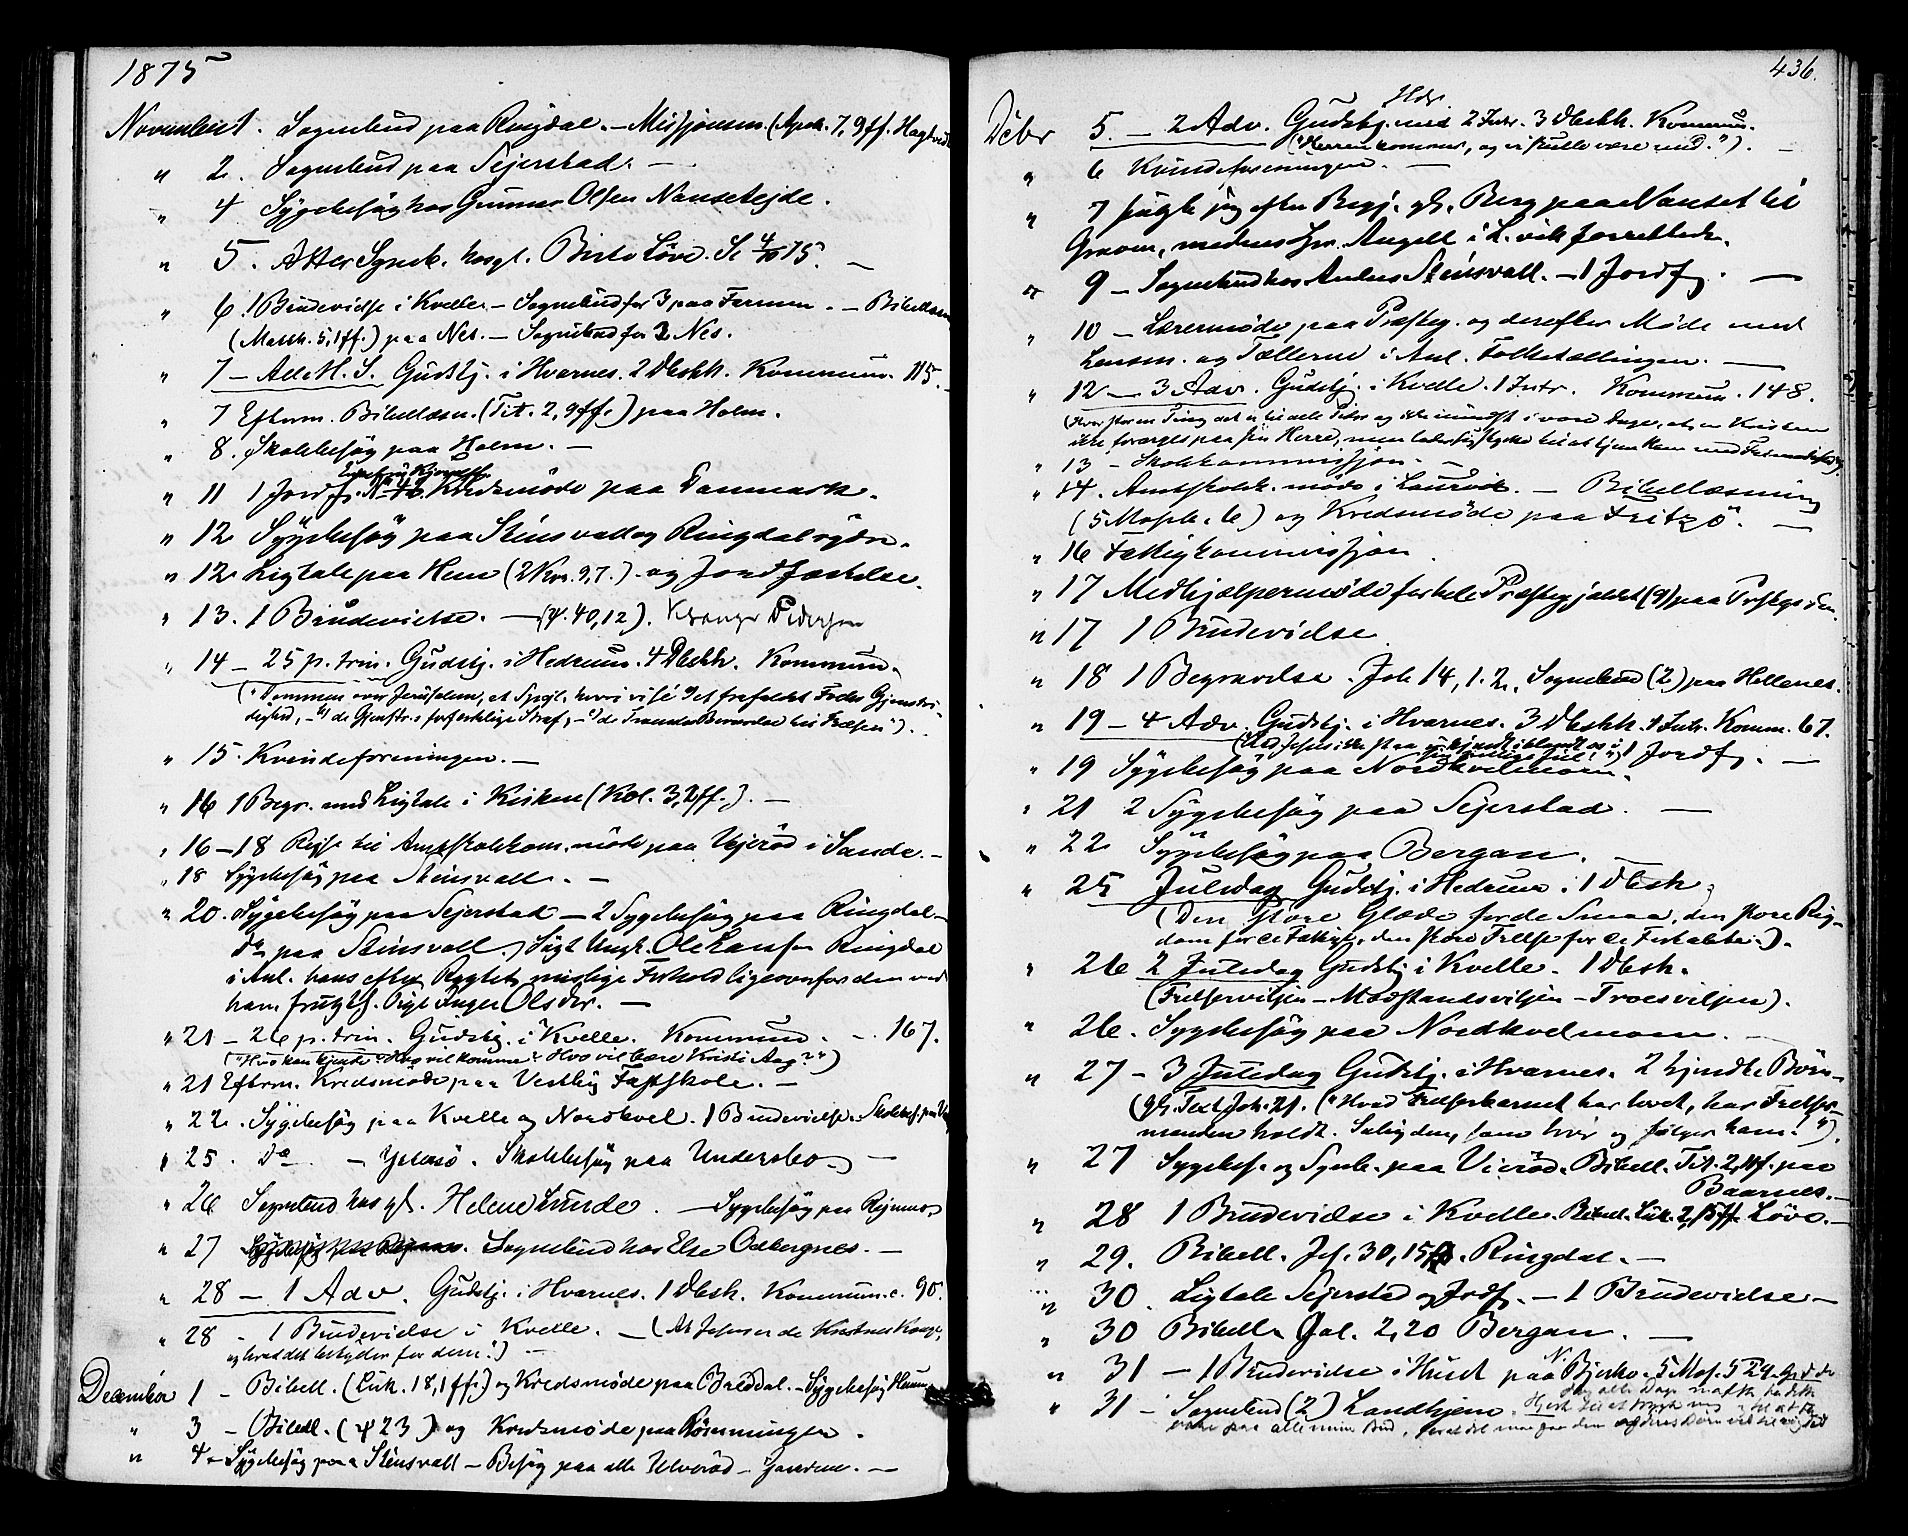 1875
November 1. Sognebud paa Ringdal. — Missjonsm. (Apok. 7, 9ff. Hagtvedt
" 2. Sognebud paa Sejerstad. —
" 4 Sygebesøg hos Gunnar Olsen Nansetejde.
" 5. Atter Sygeb. hos gl. Løve. —
" 6. 1 Brudevielse i Kvelle. — Sognebud for 3 paa Farmen. — Bibellæsn
(Matth. 5, 1ff.) paa Nes. — Sognebud for 2 Nes.
" 7 — Alle H. S. Gudstj. i Hvarnes. 2 Dbsbh. Kommun. 115.
" 7 Efterm. Bibellæsn. (Tit. 2, 9ff.) paa Holm.
" 8. Skolebesøg paa Holm. —
" 11 1 Jordf. Kredsmøde paa Danmark.
" 12 Sygebesøg paa Stensvall og Ringdal søndre.
" 12 Ligtale paa Hem (2 Kor. 9, 7.) og Jordfæstelse.
" 13. 1 Brudevielse. — (ψ. 40, 12). Pedersen
" 14 — 25 p. trin. Gudstj. i Hedrum. 4 Dbsbh. Kommun.
("Dommen over Jerusalem, et Spejl, hvori vi se Det frafaldt Folks Gjenstri-
dighed, — b) de Gjenstr.s forfærdelige Straf, — c) de Troendes Bevarelse til Frelsen").
" 15 Kvindeforeningen. —
" 16 1 Begr. med Ligtale i Kirken (Kol. 3, 2ff.). —
" 16—18 Rejse til Amtsskolekom. møde paa Vejerød i Sande. —
" 18 Sygebesøg paa Stensvall. —
" 20. Sygebesøg paa Sejerstad — 2 Sygebesøg paa Ringdal —
Do paa Stensvall. Søgt Ungk. Ole Larssen Ringdal
i Anl. hans efter Rygtet mislige Forhold ligeoverfor den ved
ham Pige Inger Olsdtr. —
" 21 — 26 p. trin. Gudstj. i Kvelle. Kommun. — 167.
("Hvo kan kjende? Hvo vil komme? Hvo vil bære Kristi Aag?")
" 21 Efterm. Kredsmøde paa Vestby Fastskole. —
" 22. Sygebesøg paa Kvelle og Nordkvel. 1 Brudevielse. Skolebes. paa
" 25. Do — Yttersø. Skolebesøg paa Undersbo. —
" 26 Sognebud hos gl. Helene Lunde. — Sygebesøg paa
" 27 Sognebud hos Else Odbergnes. —
" 28 — 1 Adv. Gudstj. i Hvarnes. 1 Dbsh. Kommun. c. 90.
" 28 — 1 Brudevielse i Kvelle. — (At Jesus er de Kristnes Konge,
og hvad det betyder for dem.) —
December 1 — Bibell. (Luk. 18, 1ff.) og Kredsmøde paa Breddal. — Sygebesøg
" 3 — Bibell. (ψ 23) og Kredsmøde paa Rømmingen.
" 4 — Sygebesøg paa Stensvall — Besøg paa alle Ulverød —
436.
Hdr.
Dcbr 5. — 2 Adv. Gudstj. med 2 Intr. 3 Dbsbh. Kommun.
("Herren kommer, og vi skulle være med."). —
" 6 Kvindeforeningen. —
" 7 fulgte jeg efter Begj. gl. Berg paa Nanset til
Graven, medens Hr. Angell i L.vik forrettede.
" 9 — Sognebud hos Anders Stensvall. — 1 Jordf. —
" 10 — Lærermøde paa Præsteg. og derefter Møde med
Lensm. og Tællerne i Anl. Folketællingen. —
" 12 — 3 Adv. Gudstj. i Kvelle. 1 Intr. Kommun. 148.
(Hvor stor en Ting det er til alle Tider og ikke mindst i vore Dage, at en Kristen
ikke forarges paa sin Herre, men
" 13 — Skolekommissjon. —
" 14. Amtsskolek. møde i Laurvik. — Bibellæsning
(5 Moseb. 6) og Kredsmøde paa Fritzø. —
" 16 Fattigkommissjon.
" 17 Medhjælpermøde for hele Præstegjeldet (9) paa
" 17 1 Brudevielse
" 18 1 Begravelse. Joh 14, 1. 2. Sognebud (2) paa Hellenes.
" 19 — 4 Adv. Gudstj. i Hvarnes. 3 Dbsbh. 1 Intr. Komm. 67.
1 Jordf. —
" 19 Sygebesøg paa Nordkvelmoen.
" 21 2 Sygebesøg paa Sejerstad. —
" 22 Sygebesøg paa Bergan. —
" 25 Juledag Gudstj. i Hedrum. 1 Dbsh.
(Den store Glæde for de Smaa, den store Rig-
dom for de Fattige, den store Frelse for de Fortabte.).
" 26 2 Juledag Gudstj i Kvelle. 1 Dbsh.
(Frelserviljen — Modstandsviljen — Troesviljen).
" 26. Sygebesøg paa Nordkvelmoen. —
" 27 — 3 Juledag Gudstj. i Hvarnes. 2 hjmdbte Børn
(gl. Text Joh. 21. ("Hvad Frelserbarnet har lovet, har Frelser-
manden holdt. Salig den, som tror og følger ham!").
" 27 Sygebes. og Sgnb. paa Vierød. Bibell. Tit. 2, 11f. paa
Baarnes. —
" 28 1 Brudevielse i Kvelle. Bibel. Luk. 2, 15ff. Løve. —
" 29. Bibell. Jes. 30, 15 Ringdal. —
" 30 Ligtale Sejersted og Jordf. — 1 Brudevielse —
" 30 Bibell. Gal. 2, 20 Bergan. —
" 31 — 1 Brudevielse i Huset paa N. Bjerke. 5 Mos. 5 29.
" 31 — Sognebud (2) Landhjem.